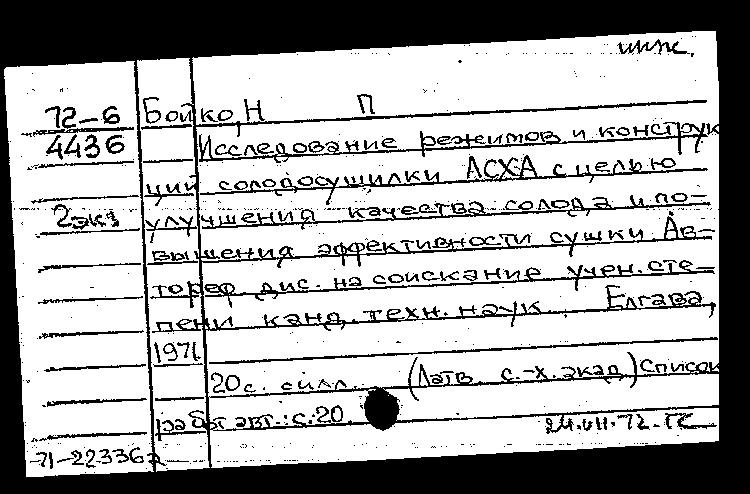 инж.
72-6 Бойко, Н П
4436 Исследование режимов и конструк
ций солодосушилки ЛСХА с целью
2экз улучшения качества солода и по-
вышения эффективности сушки. Ав-
тореф дис. на соискание учен. сте-
пени канд. техн. наук. Елгава,
1971
20 с. с илл. (Латв. с.-х. акад.) Список
работ авт.: с. 20.
24.VII.72. ГС
71-22336а